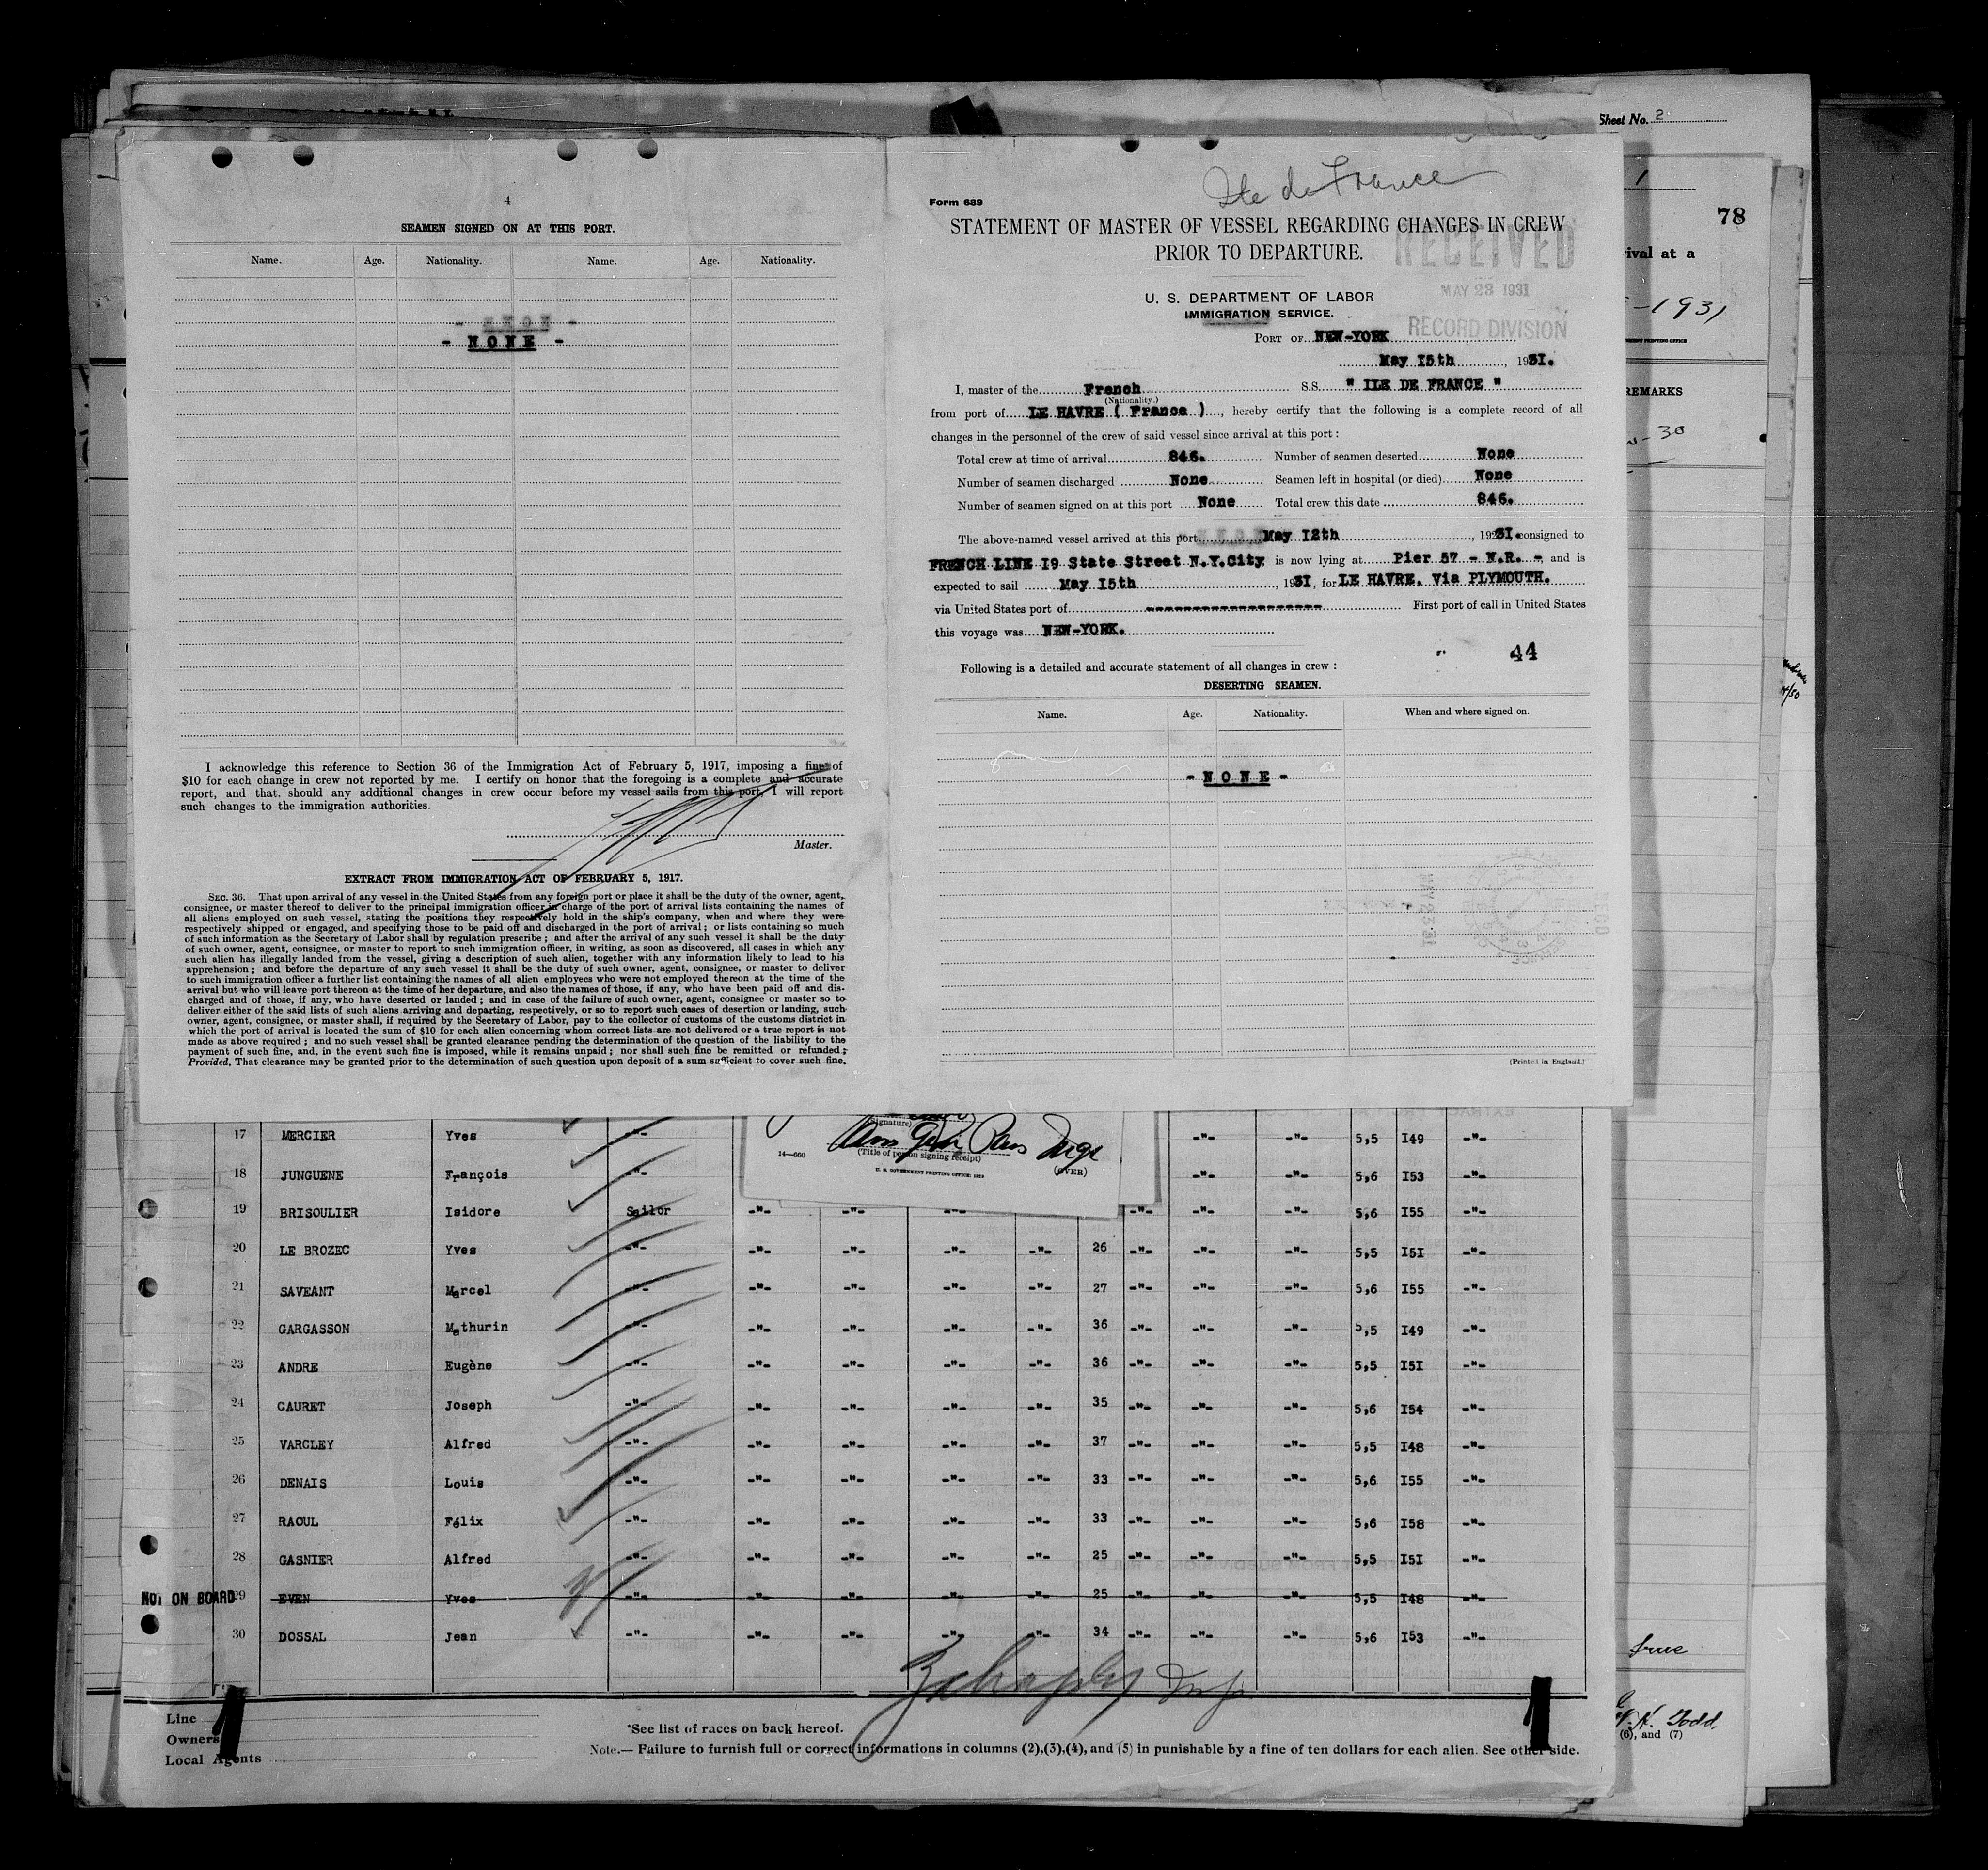 Sheet No. 2
1
78
rival at a
-1931
REMARKS
-30
4
SEAMEN SIGNED ON AT THIS PORT.
Name. Age. Nationality. Name. Age. Nationality.
- NONE -
I acknowledge this reference to Section 36 of the Immigration Act of February 5, 1917, imposing a fine of
$10 for each change in crew not reported by me. I certify on honor that the foregoing is a complete and accurate
report, and that, should any additional changes in crew occur before my vessel sails from this port, I will report
such changes to the immigration authorities.
Master.
EXTRACT FROM IMMIGRATION ACT OF FEBRUARY 5, 1917.
SEC. 36. That upon arrival of any vessel in the United States from any foreign port or place it shall be the duty of the owner, agent,
consignee, or master thereof to deliver to the principal immigration officer in charge of the port of arrival lists containing the names of
all aliens employed on such vessel, stating the positions they respectively hold in the ship's company, when and where they were
respectively shipped or engaged, and specifying those to be paid off and discharged in the port of arrival; or lists containing so much
of such information as the Secretary of Labor shall by regulation prescribe; and after the arrival of any such vessel it shall be the duty
of such owner, agent, consignee, or master to report to such immigration officer, in writing, as soon as discovered, all cases in which any
such alien has illegally landed from the vessel, giving a description of such alien, together with any information likely to lead to his
apprehension; and before the departure of any such vessel it shall be the duty of such owner, agent, consignee, or master to deliver
to such immigration officer a further list containing the names of all alien employees who were not employed thereon at the time of the
arrival but who will leave port thereon at the time of her departure, and also the names of those, if any, who have been paid off and dis-
charged and of those, if any, who have deserted or landed; and in case of the failure of such owner, agent, consignee or master so to
deliver either of the said lists of such aliens arriving and departing, respectively, or so to report such cases of desertion or landing, such
owner, agent, consignee, or master shall, if required by the Secretary of Labor, pay to the collector of customs of the customs district in
which the port of arrival is located the sum of $10 for each alien concerning whom correct lists are not delivered or a true report is not
made as above required; and no such vessel shall be granted clearance pending the determination of the question of the liability to the
payment of such fine, and, in the event such fine is imposed, while it remains unpaid; nor shall such fine be remitted or refunded;
Provided, That clearance may be granted prior to the determination of such question upon deposit of a sum sufficient to cover such fine.
Ile de France
Form 689
STATEMENT OF MASTER OF VESSEL REGARDING CHANGES IN CREW
PRIOR TO DEPARTURE.
RECEIVED
MAY 23 1931
RECORD DIVISION
U. S. DEPARTMENT OF LABOR
IMMIGRATION SERVICE.
PORT OF NEW-YORK
May 15th, 1931.
I, master of the French S.S. " ILE DE FRANCE "
(Nationality.)
from port of LE HAVRE ( France ), hereby certify that the following is a complete record of all
changes in the personnel of the crew of said vessel since arrival at this port:
Total crew at time of arrival 846. Number of seamen deserted None
Number of seamen discharged None Seamen left in hospital (or died) None
Number of seamen signed on at this port None Total crew this date 846.
The above-named vessel arrived at this port May 12th, 1931. consigned to
FRENCH LINE 19 State Street N.Y.City is now lying at Pier 57 - N.R. - and is
expected to sail May 15th, 1931, for LE HAVRE. Via PLYMOUTH.
via United States port of First port of call in United States
this voyage was NEW-YORK.
44
Following is a detailed and accurate statement of all changes in crew:
DESERTING SEAMEN.
Name. Age. Nationality. When and where signed on.
- NONE -
(Printed in England.)
(Signature)
(Title of person signing receipt)
14-660
U. S. GOVERNMENT PRINTING OFFICE: 1929
(OVER)
17 MERCIER Yves -"- -"- -"- 5,5 149 -"-
18 JUNGUENE François -"- -"- -"- 5,6 153 -"-
19 BRISOULIER Isidore Sailor -"- -"- -"- -"- -"- -"- 5,6 155 -"-
20 LE BROZEC Yves -"- -"- -"- -"- -"- 26 -"- -"- -"- 5,5 151 -"-
21 SAVEANT Marcel -"- -"- -"- -"- -"- 27 -"- -"- -"- 5,6 155 -"-
22 GARGASSON Mathurin -"- -"- -"- -"- -"- 36 -"- -"- -"- 5,5 149 -"-
23 ANDRE Eugène -"- -"- -"- -"- -"- 36 -"- -"- -"- 5,5 151 -"-
24 CAURET Joseph -"- -"- -"- -"- -"- 35 -"- -"- -"- 5,6 154 -"-
25 VARCLEY Alfred -"- -"- -"- -"- -"- 37 -"- -"- -"- 5,5 148 -"-
26 DENAIS Louis -"- -"- -"- -"- -"- 33 -"- -"- -"- 5,6 155 -"-
27 RAOUL Félix -"- -"- -"- -"- -"- 33 -"- -"- -"- 5,6 158 -"-
28 GASNIER Alfred -"- -"- -"- -"- -"- 25 -"- -"- -"- 5,5 151 -"-
NOT ON BOARD 29 EVEN Yves -"- -"- -"- -"- -"- 25 -"- -"- -"- 5,5 148 -"-
30 DOSSAL Jean -"- -"- -"- -"- -"- 34 -"- -"- -"- 5,6 153 -"-
Line
Owners
Local Agents
*See list of races on back hereof.
Note.— Failure to furnish full or correct informations in columns (2),(3),(4), and (5) in punishable by a fine of ten dollars for each alien. See other side.
true
Todd
(6), and (7)